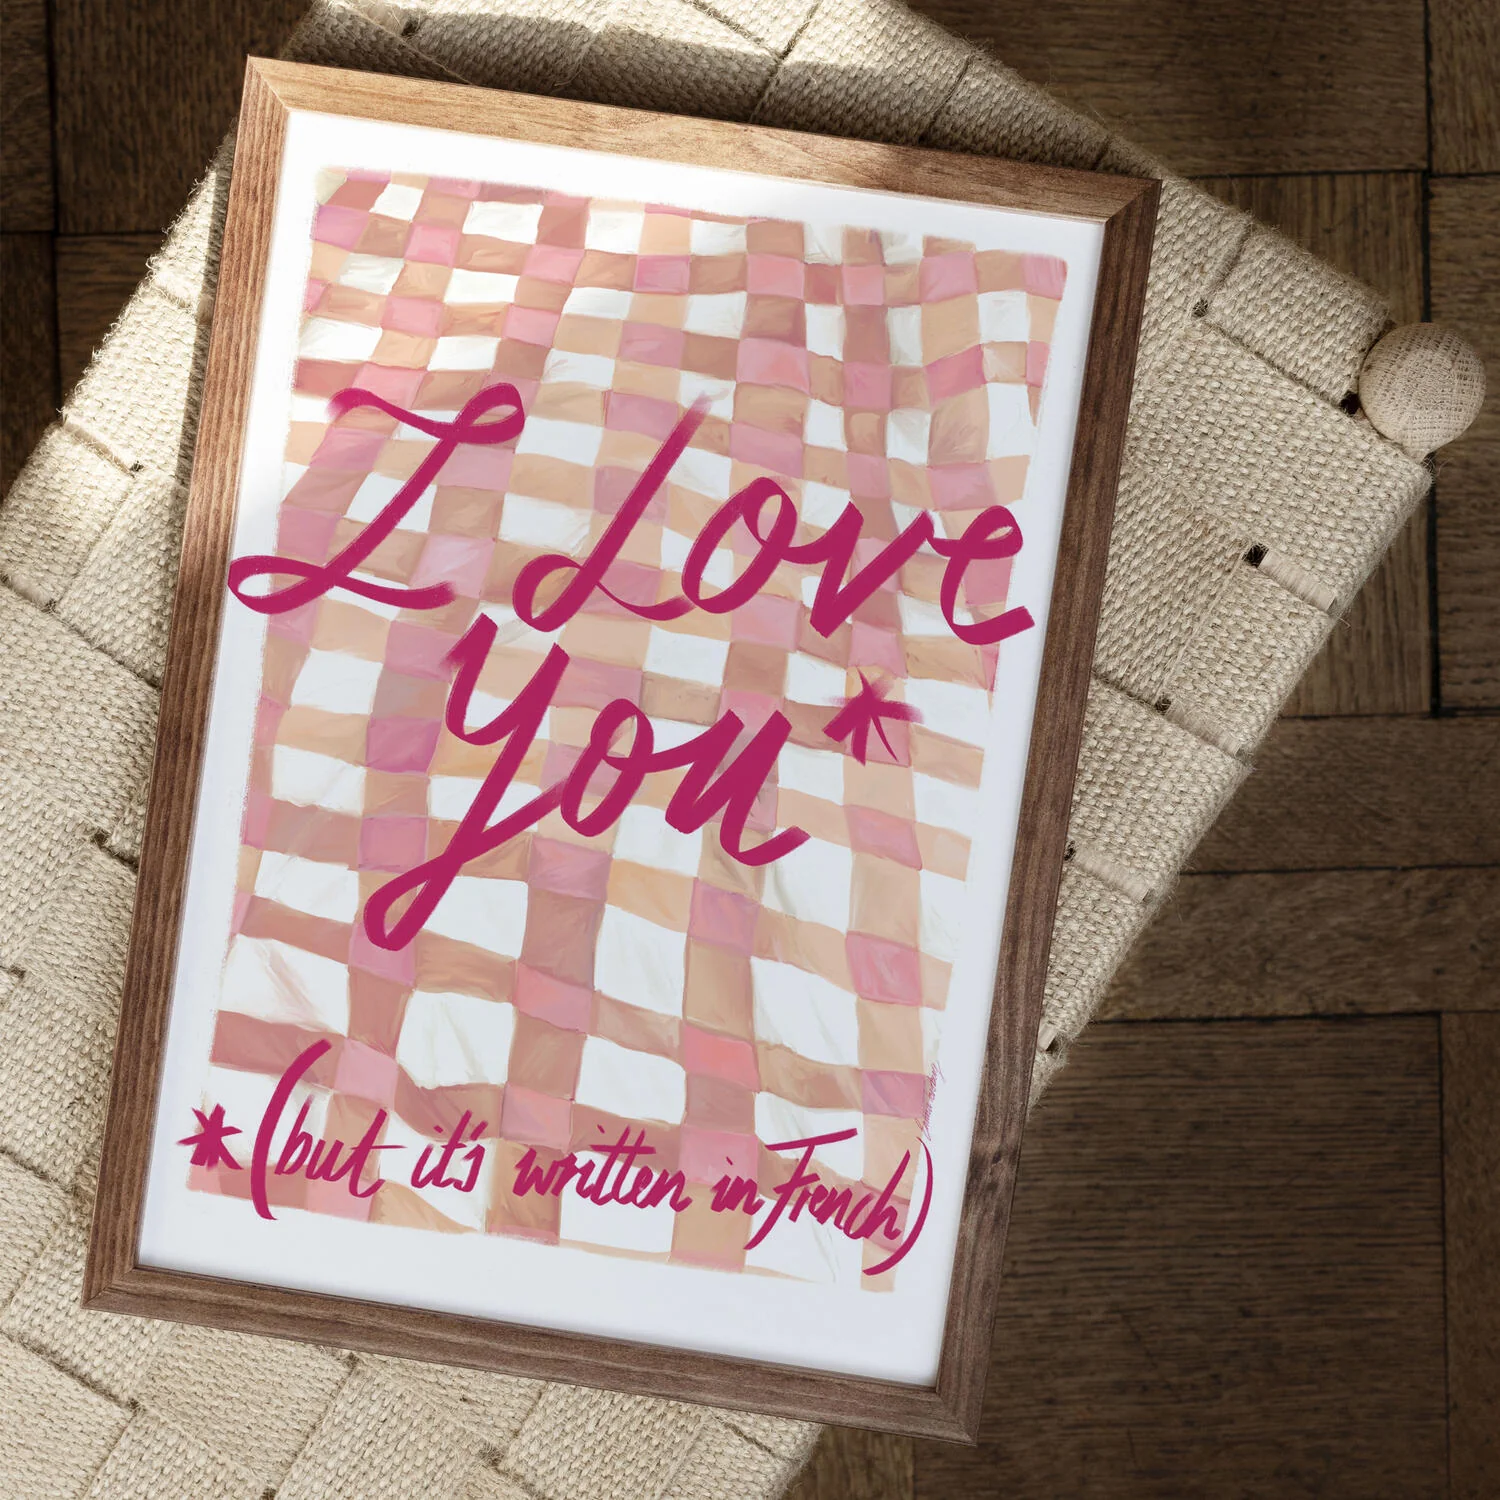 I Love
you*
*(but it's written in French)